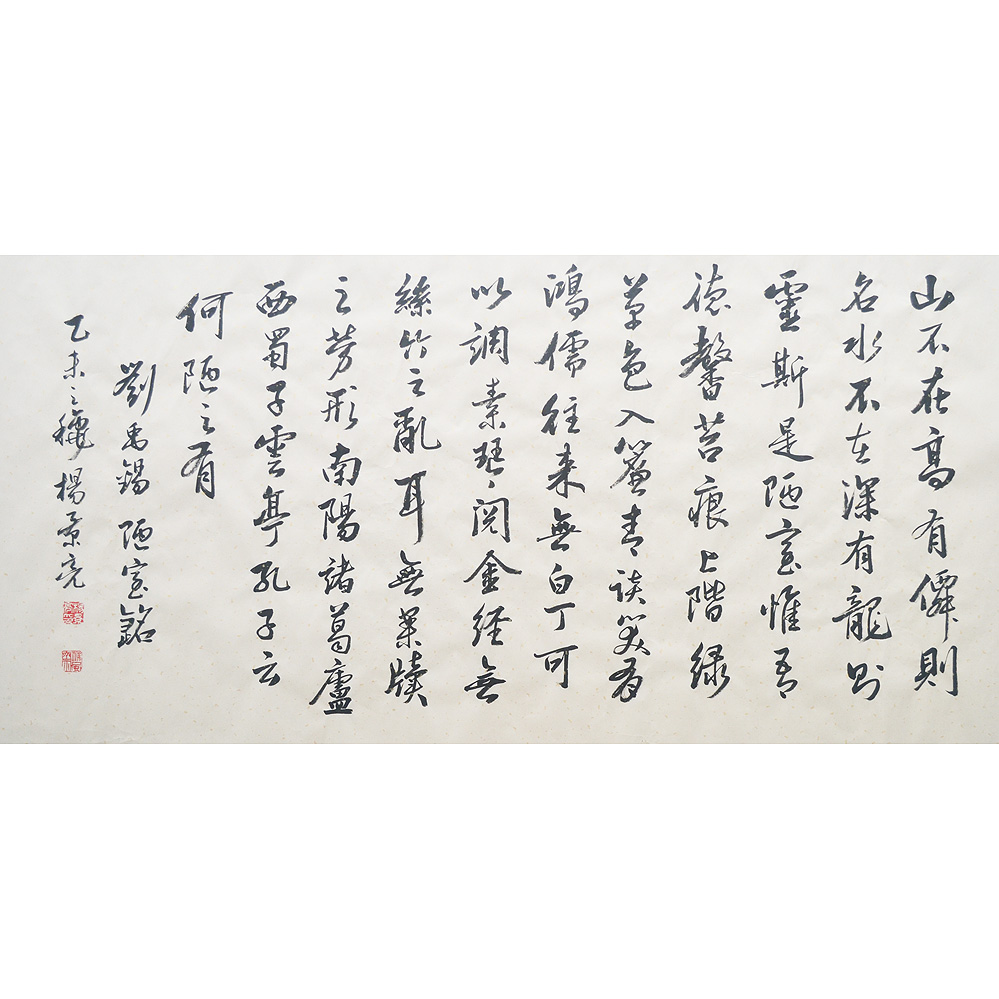 山不在高有僊則
名水不在深有龍則
靈斯是陋室惟吾
德馨苔痕上階綠
草色入簾青談笑有
鴻儒往來無白丁可
以調素琴閱金經無
絲竹之亂耳無案牘
之勞形南陽諸葛廬
西蜀子雲亭孔子云
何陋之有
劉禹錫陋室銘
乙未之穐楊景亮